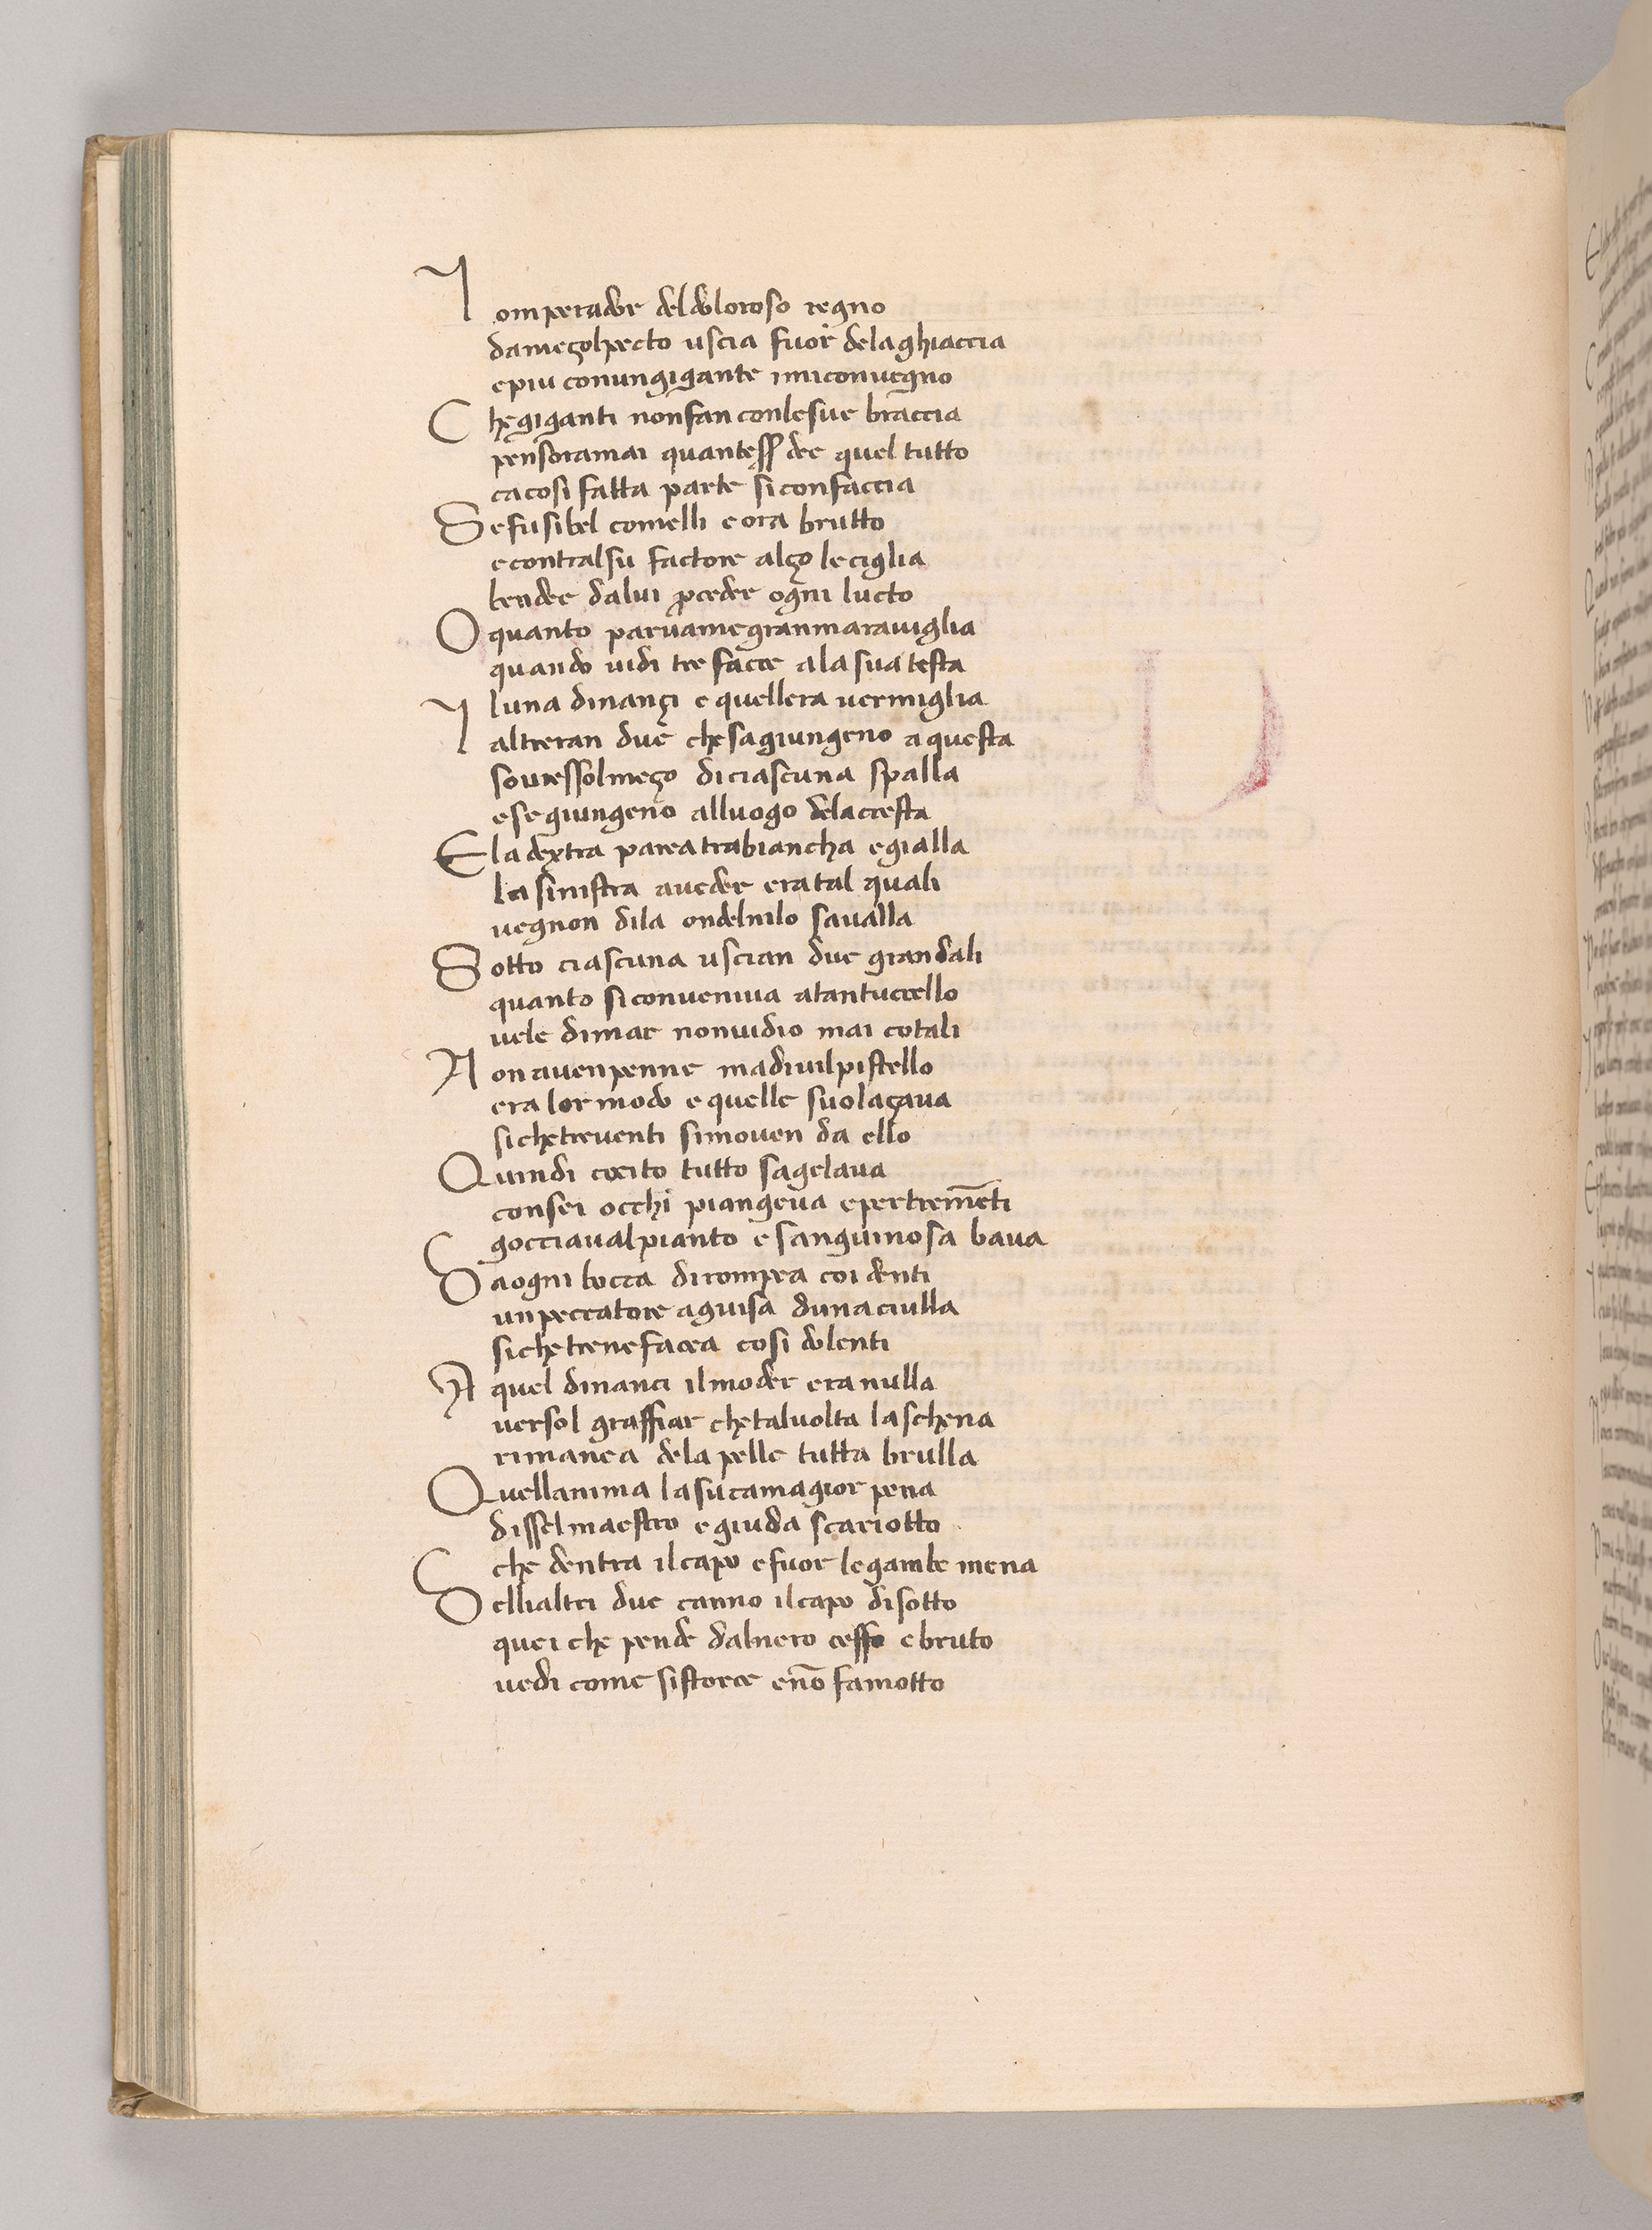 I omperador del doloroso regno
dameçolpecto uscia fuor delaghiaccia
epiu conungigante imiconuegno
C hegiganti nonfan conlesue braccia
pensoramai quantess dee quel tutto
cacosi fatta parte siconfaccia
S efusibel comelli eora brutto
econtralsu factore alço leciglia
bendee dalui pceder ogni lucto
O quanto paruamegranmarauiglia
quando uidi tre facce alasua testa
luna dinançi e quellera uermiglia
I altreran due chesagiungeno aquesta
souressolmeço diciascuna spalla
esegiungeno alluogo delacresta
E ladextra pareatrabiancha egialla
la sinistra aueder eratal quali
uegnon dila ondelnilo saualla
S otto ciascuna uscian due grandali
quanto siconueniua atantuccello
uele dimar nonuidio mai cotali
N onauenpenne madiuilpistello
era lor modo equelle suolaçaua
sichetreuenti simouen da ello
Q uindi cocito tutto sagelaua
consei occhi piangeua epertremēti
gocciaualpianto esanguinosa baua
D aogni bocca dirompea coi denti
unpeccatore aguisa dunaciulla
sichetrenefacea cosi dolenti
A quel dinanci ilmorder eranulla
uersol graffiar chetaluolta laschena
rimanea dela pelle tutta brulla
Q uellanima lasucamagior pena
disselmaestro egiuda scariotto
che dentra ilcapo efuor legambe mena
D ellialtri due canno ilcapo disotto
quei che pende dalnero ceffo ebruto
uedi come sistorce enō famotto